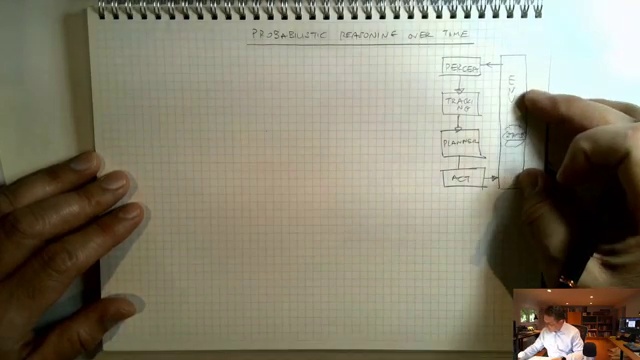 PROBABILISTIC REASONING OVER TIME
PERCEPT
TRACKI
NG
PLANNER
ACT